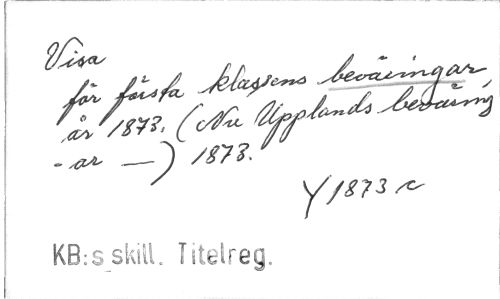 Visa
för första klassens beväringar
år 1873. (Nu Upplands beväring
-ar —) 1873.
Y 1873 r
KB:s skill. Titelreg.